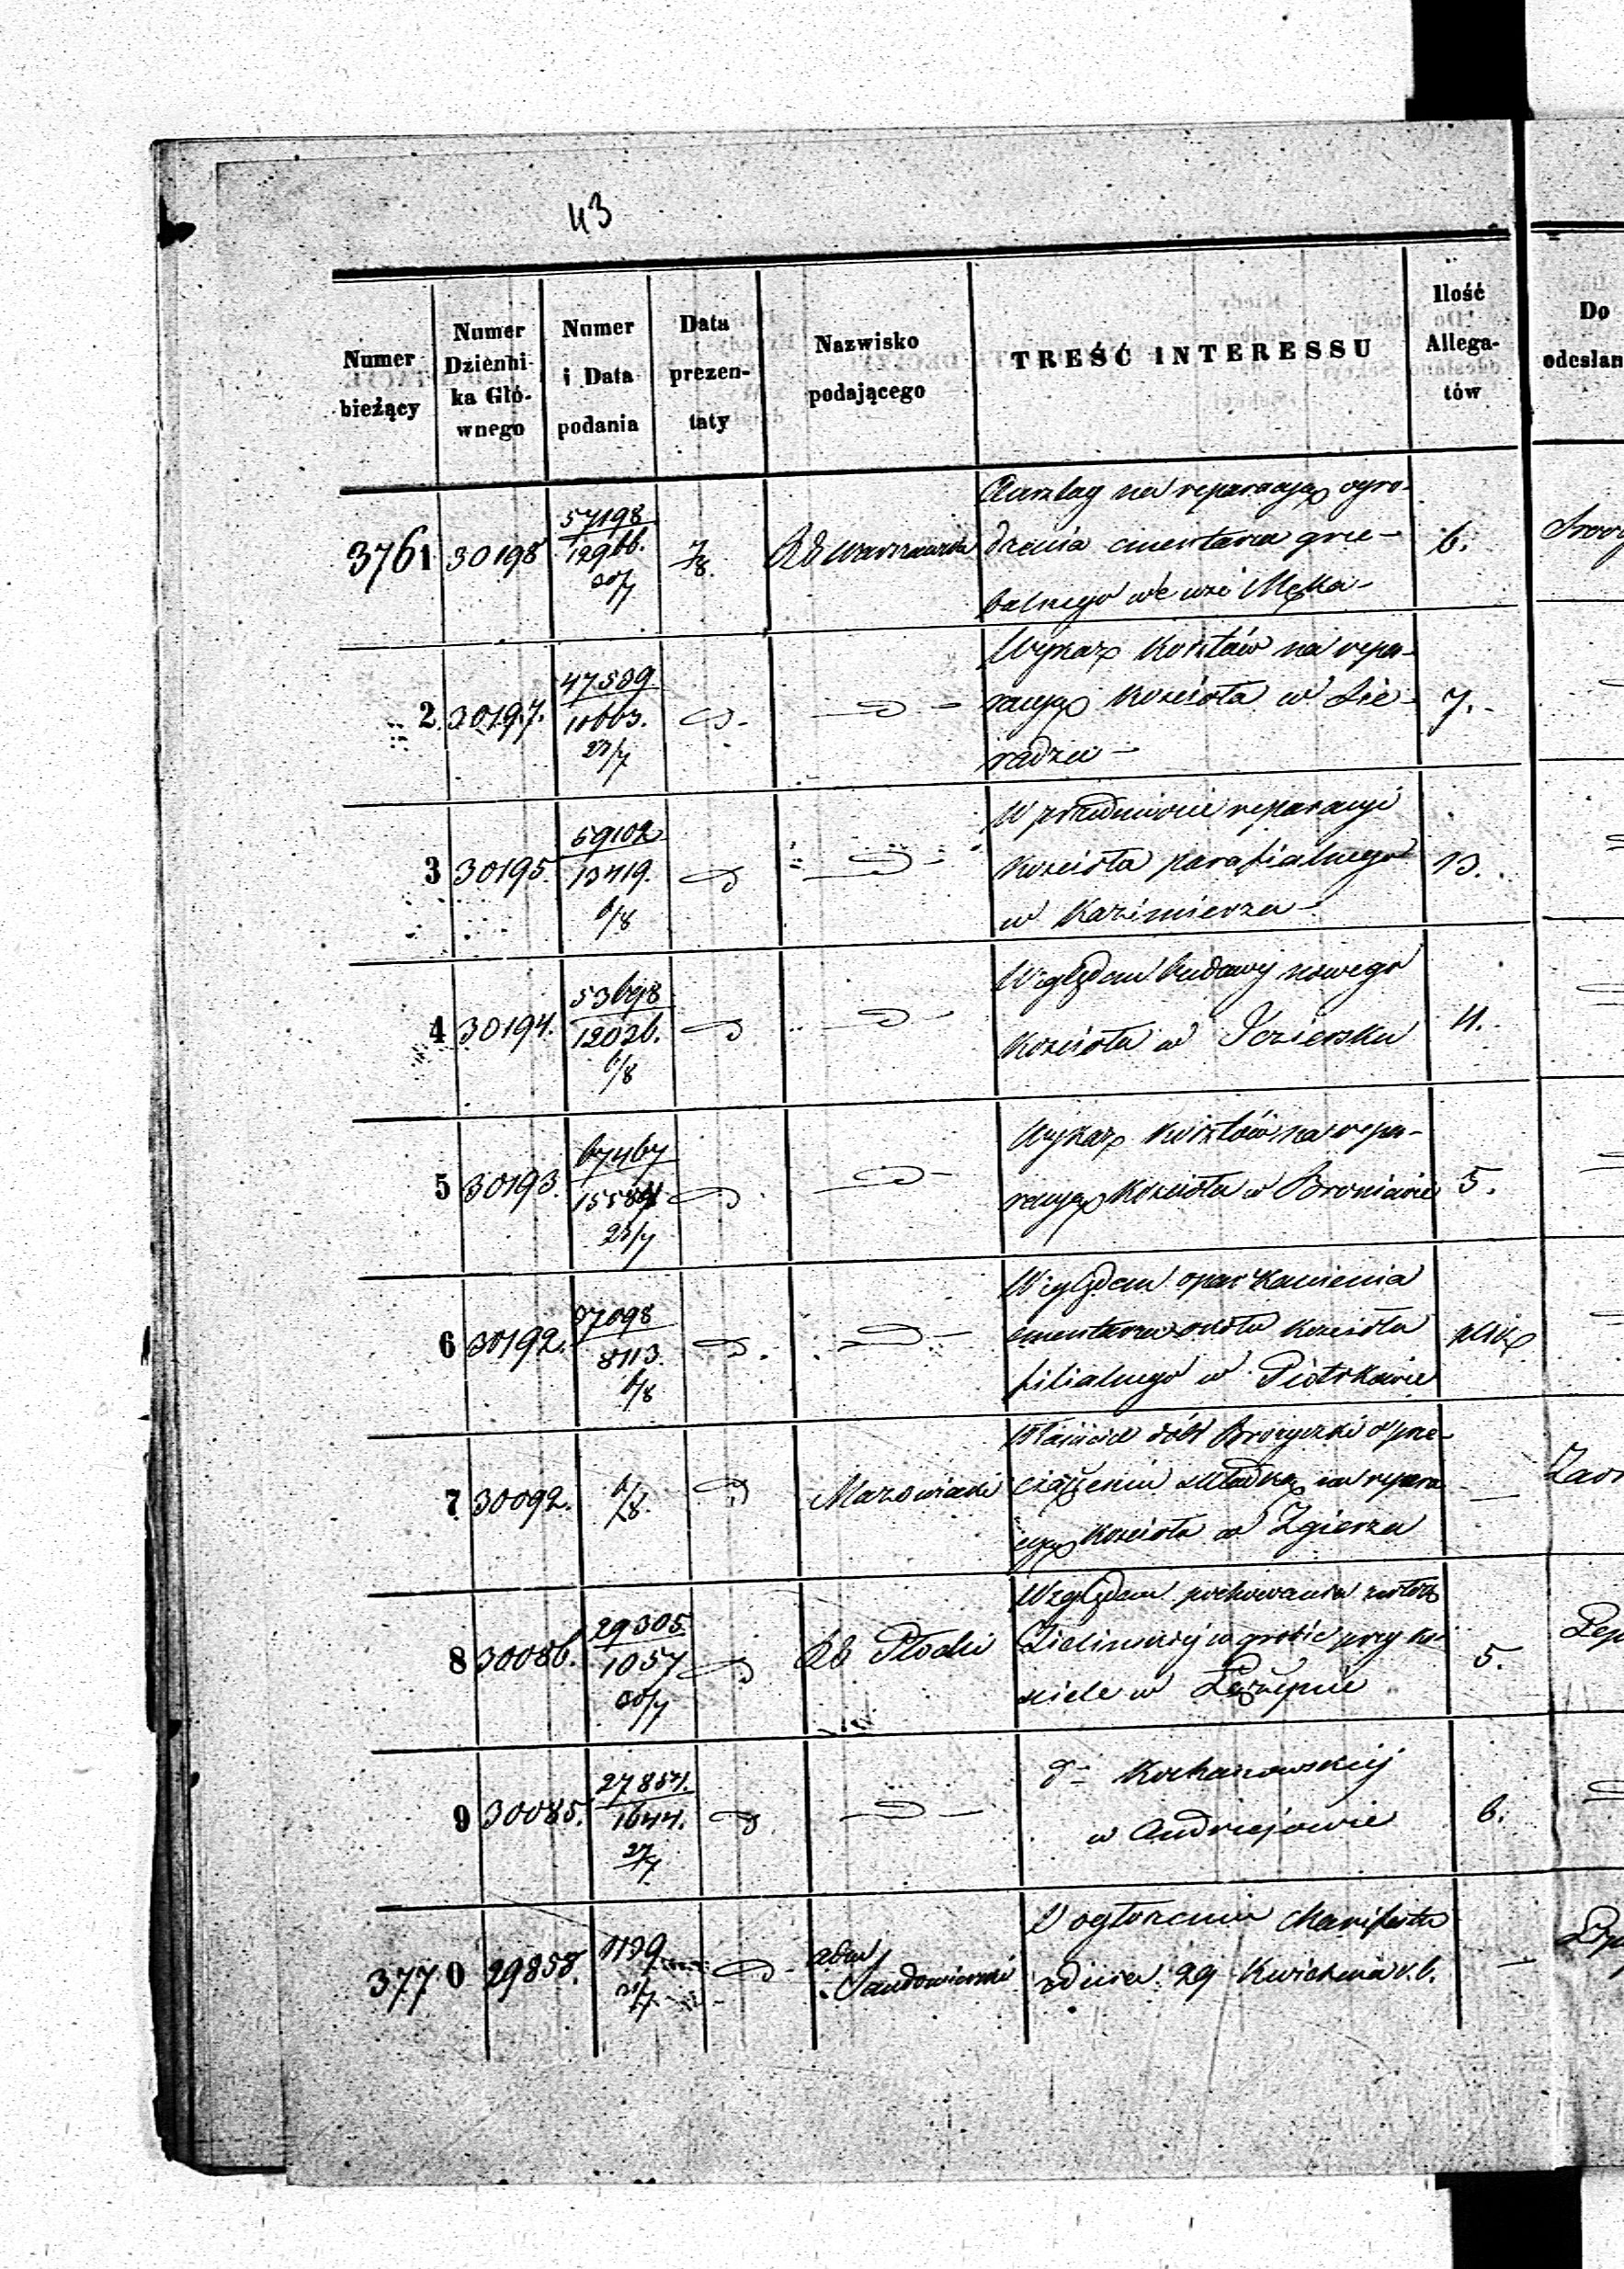 43
Numer bieżący
Numer Dzienni-ka Głó-wnego
Numer i Data podania
Data prezen-taty
Nazwisko podającego
TREŚĆ INTERESSU
Ilość Allega-tów
Do odesłan
3761 30198 57198 12966. 30/7 7/8. RG Warszawski
Anszlag na reparacyą ogro-
dzenia cmentarza grze-
balnego we wsi Męka- 6.
2 30197. 47509 10663. 23/7
Wykaz kosztów na repa-
racyą Kościoła w Sie- 7.
radzu -
3 30195. 59102 13419. 6/8
W przedmiocie reparacyi
Kościoła parafialnego 13.
w Kazimierzu -
4 30194. 53698 12026. 6/8
Względem budowy nowego
Kościoła w Jeziersku 4.
5 30193. 67467 23/7
Wykaz kosztów na repa-
racyą Kościoła w Broniewie 5.
6 30192. 37098 8113. 6/8
Względem oparkanienia
cmentarza około Kościoła plik
filialnego w Piotrkowie
7 30092. 6/8. Mazowiecki
dóbr
składką na repara
cyą Kościoła w Zgierzu
8 30086. 29305 1057 30/7 RG Płocki
Względem pochowania zwłok
Zielińskiej w grobie przy ko- 5.
ściele w
9 30085. 27854. 1644. 27/7
do Kochanowskiej
w Andrzejowie 6.
3770 29858. 1139 21/7 Adm Sandomierski
O ogłoszeniu Manifestu
z dnia 29 Kwietnia r.b.